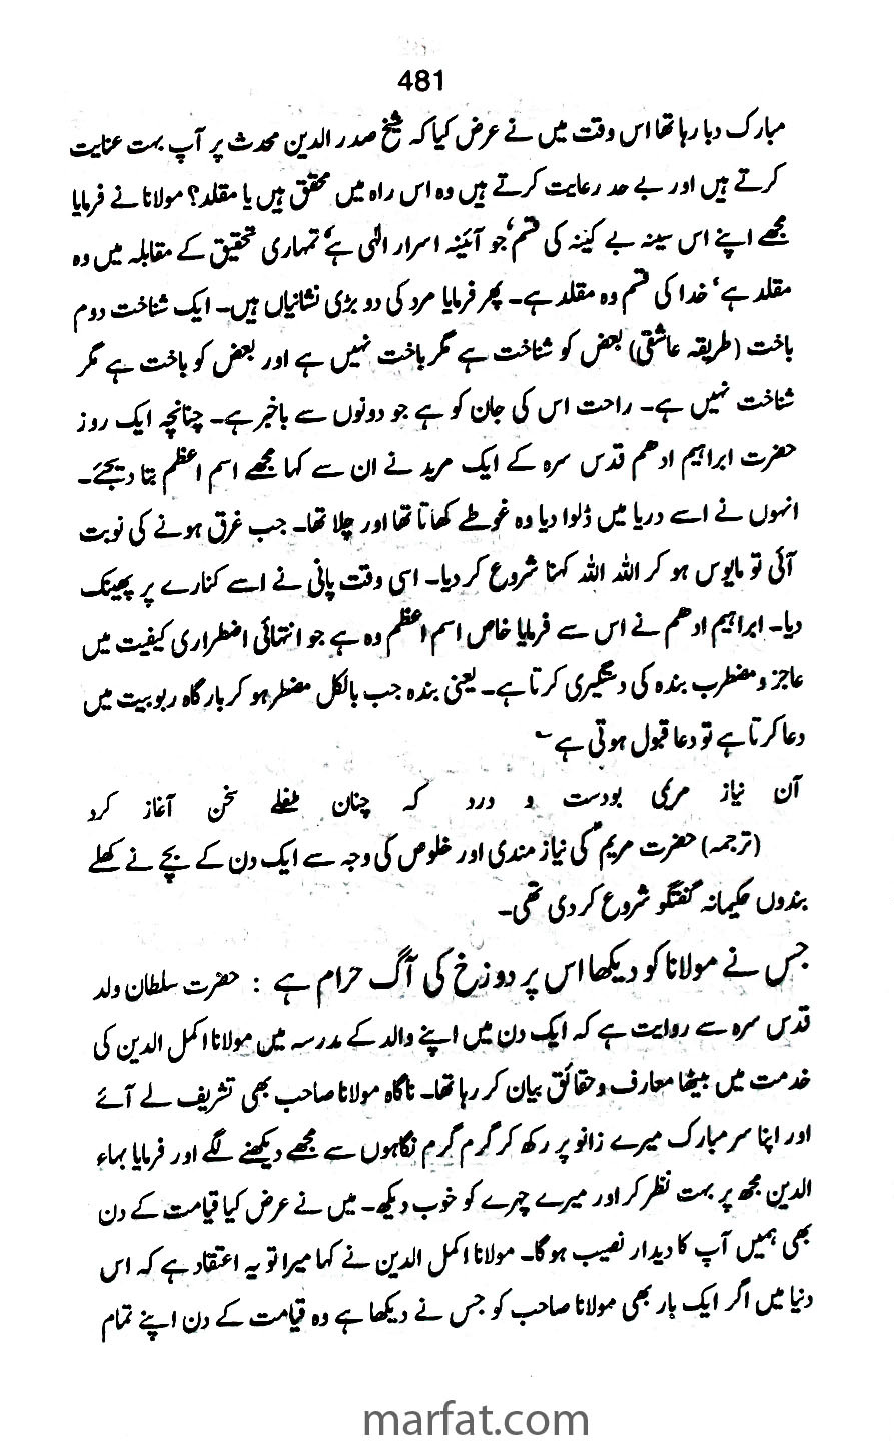 481
مبارک دبا رہا تھا اس وقت میں نے عرض کیا کہ شیخ صدر الدین محدث پر آپ بہت عنایت
کرتے ہیں اور بے حد رعایت کرتے ہیں وہ اس راہ میں محقق ہیں یا مقلد؟ مولانا نے فرمایا
مجھے اپنے اس سینہ بے کینہ کی قسم‘ جو آئینہ اسرار الٰہی ہے‘ تمہاری تحقیق کے مقابلہ میں وہ
مقلد ہے‘ خدا کی قسم وہ مقلد ہے۔ پھر فرمایا مرد کی دو بڑی نشانیاں ہیں۔ ایک شناخت دوم
باخت (طریقہ عاشقی) بعض کو شناخت ہے مگر باخت نہیں ہے اور بعض کو باخت ہے مگر
شناخت نہیں ہے۔ راحت اس کی جان کو ہے جو دونوں سے باخبر ہے۔ چنانچہ ایک روز
حضرت ابراہیم ادھم قدس سرہ کے ایک مرید نے ان سے کہا مجھے اسم اعظم بتا دیجئے۔
انہوں نے اسے دریا میں ڈلوا دیا وہ غوطے کھاتا تھا اور چلا تھا۔ جب غرق ہونے کی نوبت
آئی تو مایوس ہو کر اللہ اللہ کہنا شروع کر دیا۔ اسی وقت پانی نے اسے کنارے پر پھینک
دیا۔ ابراہیم ادھم نے اس سے فرمایا خاص اسم اعظم وہ ہے جو انتہائی اضطراری کیفیت میں
عاجز و مضطرب بندہ کی دستگیری کرتا ہے۔ یعنی بندہ جب بالکل مضطر ہو کر بارگاہ ربوبیت میں
دعا کرتا ہے تو دعا قبول ہوتی ہے ؎
آن نیاز مری بودست و درد کہ چنان طفلے سخن آغاز کرد
(ترجمہ) حضرت مریمؑ کی نیاز مندی اور خلوص کی وجہ سے ایک دن کے بچے نے کھلے
بندوں حکیمانہ گفتگو شروع کر دی تھی۔
جس نے مولانا کو دیکھا اس پر دوزخ کی آگ حرام ہے : حضرت سلطان ولد
قدس سرہ سے روایت ہے کہ ایک دن میں اپنے والد کے مدرسہ میں مولانا اکمل الدین کی
خدمت میں بیٹھا معارف و حقائق بیان کر رہا تھا۔ ناگاہ مولانا صاحب بھی تشریف لے آئے
اور اپنا سر مبارک میرے زانو پر رکھ کر گرم گرم نگاہوں سے مجھے دیکھنے لگے اور فرمایا بہاء
الدین مجھ پر بہت نظر کر اور میرے چہرے کو خوب دیکھ۔ میں نے عرض کیا قیامت کے دن
بھی ہمیں آپ کا دیدار نصیب ہوگا۔ مولانا اکمل الدین نے کہا میرا تو یہ اعتقاد ہے کہ اس
دنیا میں اگر ایک بار بھی مولانا صاحب کو جس نے دیکھا ہے وہ قیامت کے دن اپنے تمام
marfat.com